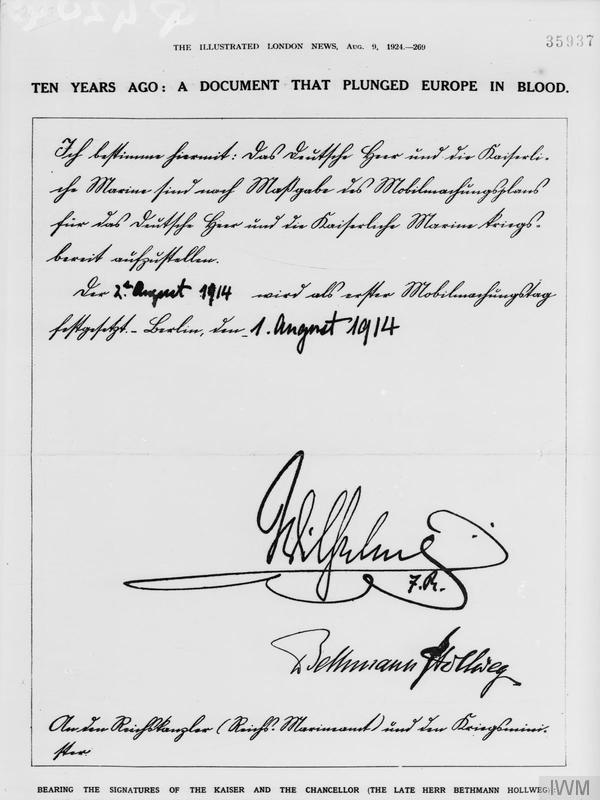 THE ILLUSTRATED LONDON NEWS, AUG. 9, 1924.—269
35937
TEN YEARS AGO: A DOCUMENT THAT PLUNGED EUROPE IN BLOOD.
Ich bestimme hiermit: Das Deutsche Heer und die Kaiserli-
che Marine sind nach Maßgabe des Mobilmachungsplans
für das Deutsche Heer und die Kaiserliche Marine kriegs-
bereit aufzustellen.
Der 2te August 1914 wird als erster Mobilmachungstag
festgesetzt.– Berlin, den 1. August 1914
Wilhelm
I.R.
Bethmann Hollweg
An den Reichskanzler (Reichs-Marineamt) und den Kriegsmini-
ster.
BEARING THE SIGNATURES OF THE KAISER AND THE CHANCELLOR (THE LATE HERR BETHMANN HOLLWEG):
IWM